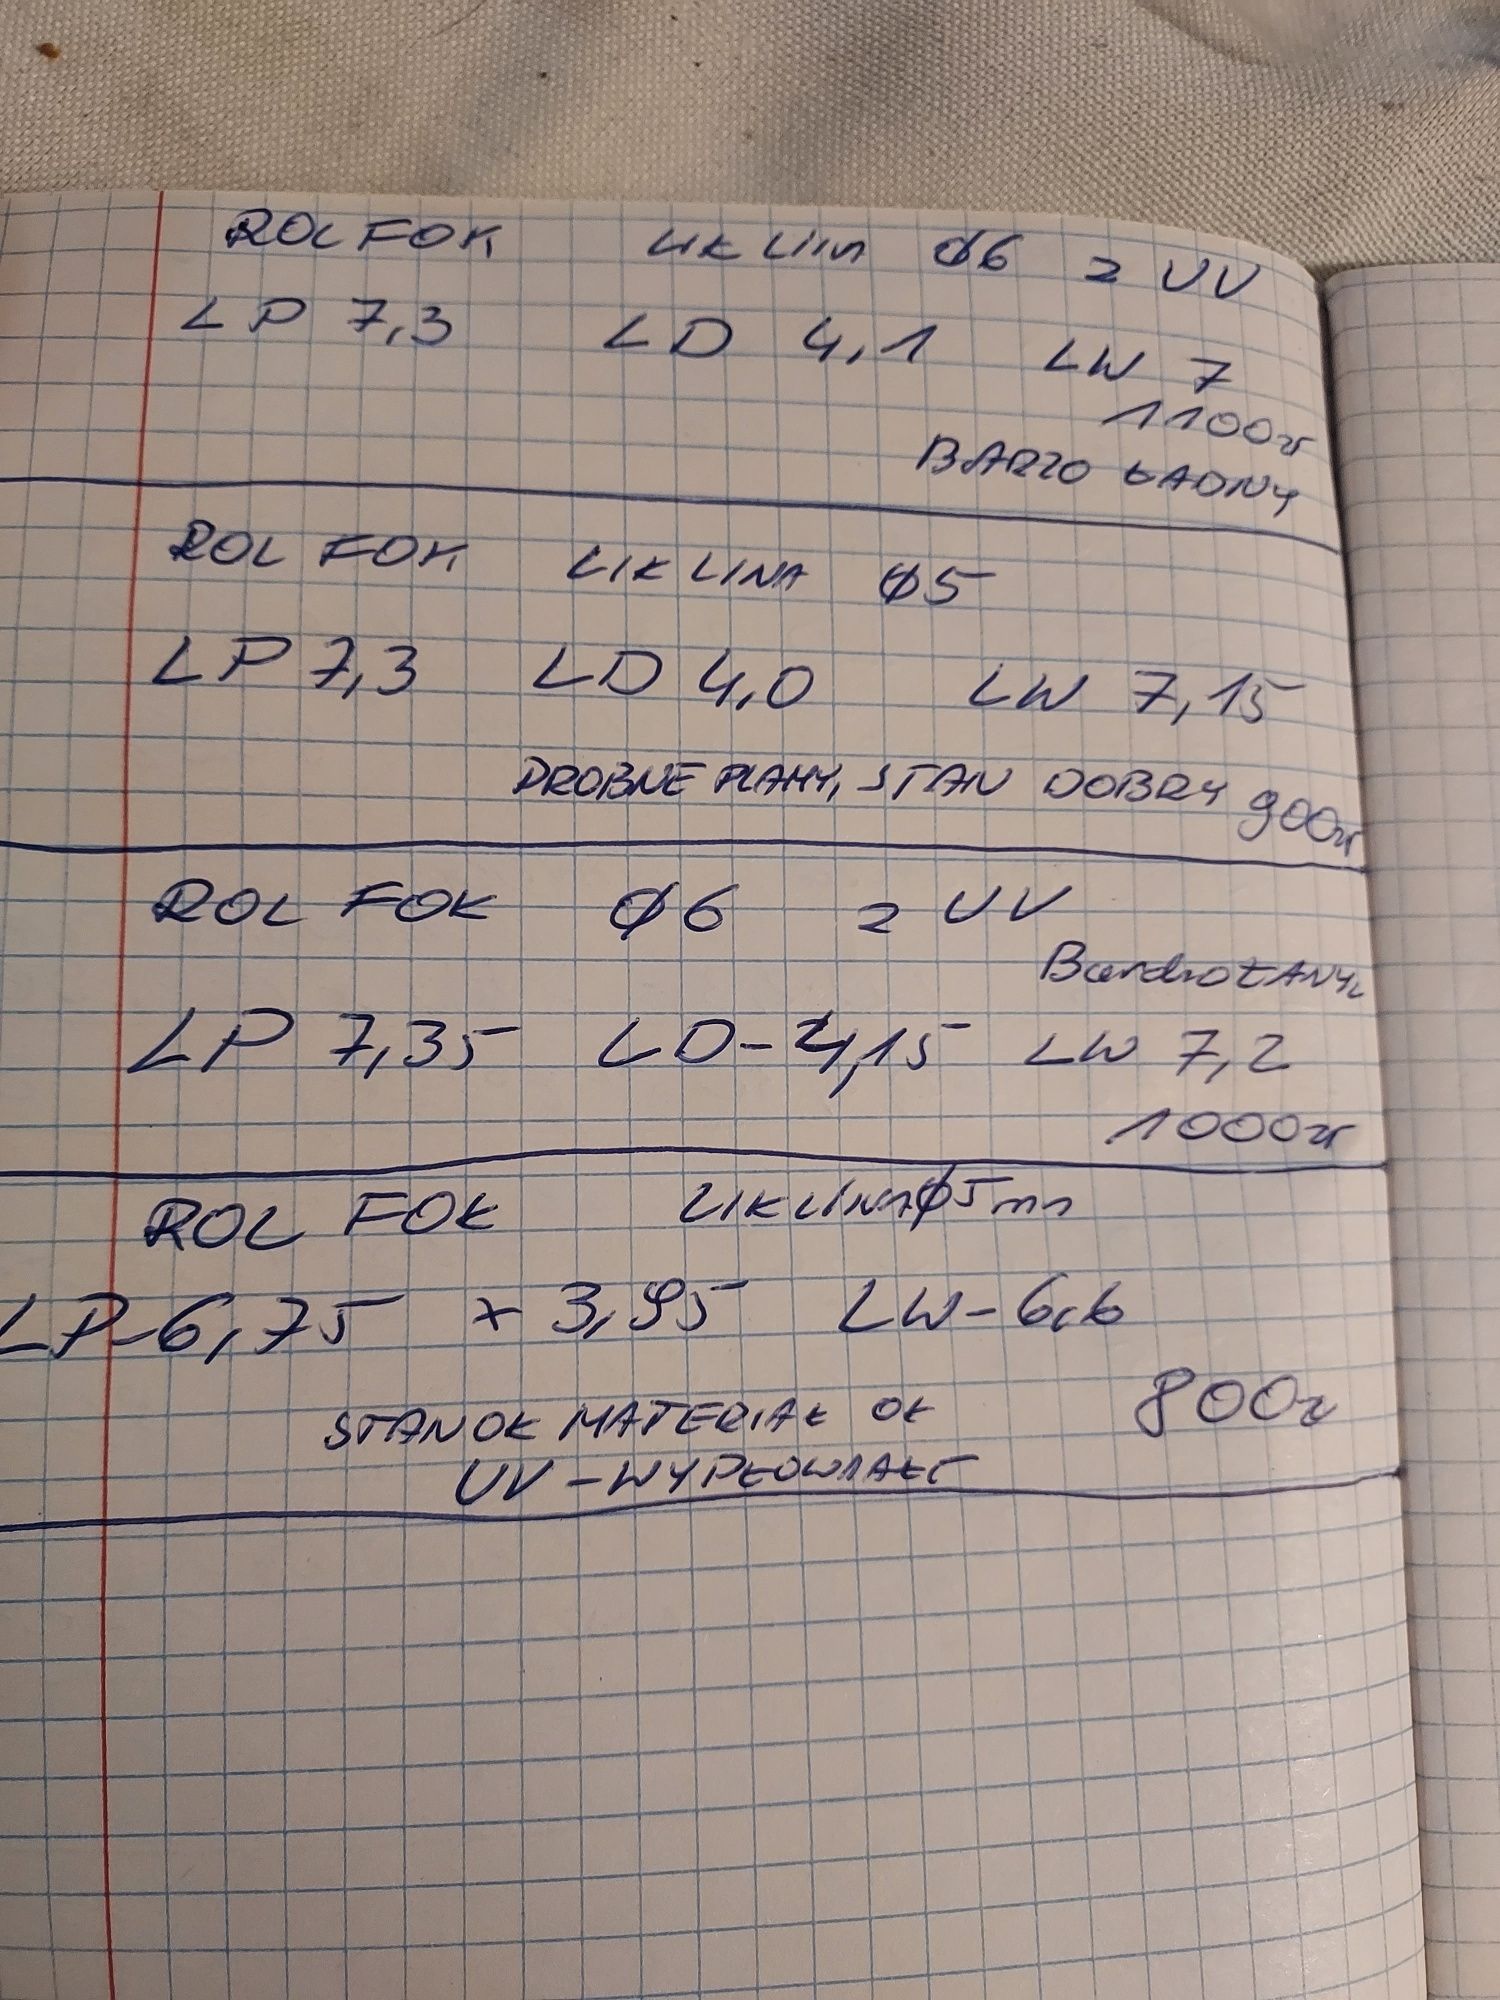 ROL FOK LIK LIM Ø6 z UV
LP 7,3 LD 4,1 LW 7
1100zł
BARZO ŁADNY
ROL FOK LIK LINA Ø5
LP 7,3 LD 4,0 LW 7,15
DROBNE PLAMY, STAN DOBRY 900zł
ROL FOK Ø6 z UV
Bardzo ŁANY
LP 7,35 LD-4,15 LW 7,2
1000zł
ROL FOK LIK LINA Ø5mm
LP-6,75 x 3,95 LW-6,6
800zł
STAN OK MATERIAŁ OK
UV-WYPŁOWIAŁE